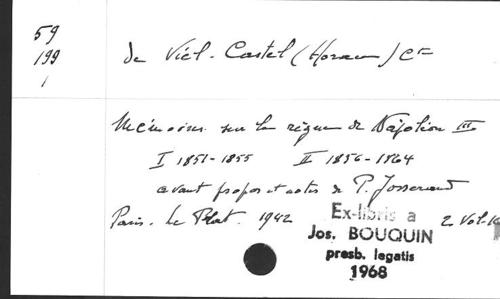 59
199
1
de Viel-Castel (Horace) Cte
Mémoires sur le règne de Napoléon III
I 1851-1855 II 1856-1864
avant propos et notes de P. Josserand
Paris. Le Prat. 1942 2 Vol.
Ex-libris a
Jos. BOUQUIN
presb. legatis
1968